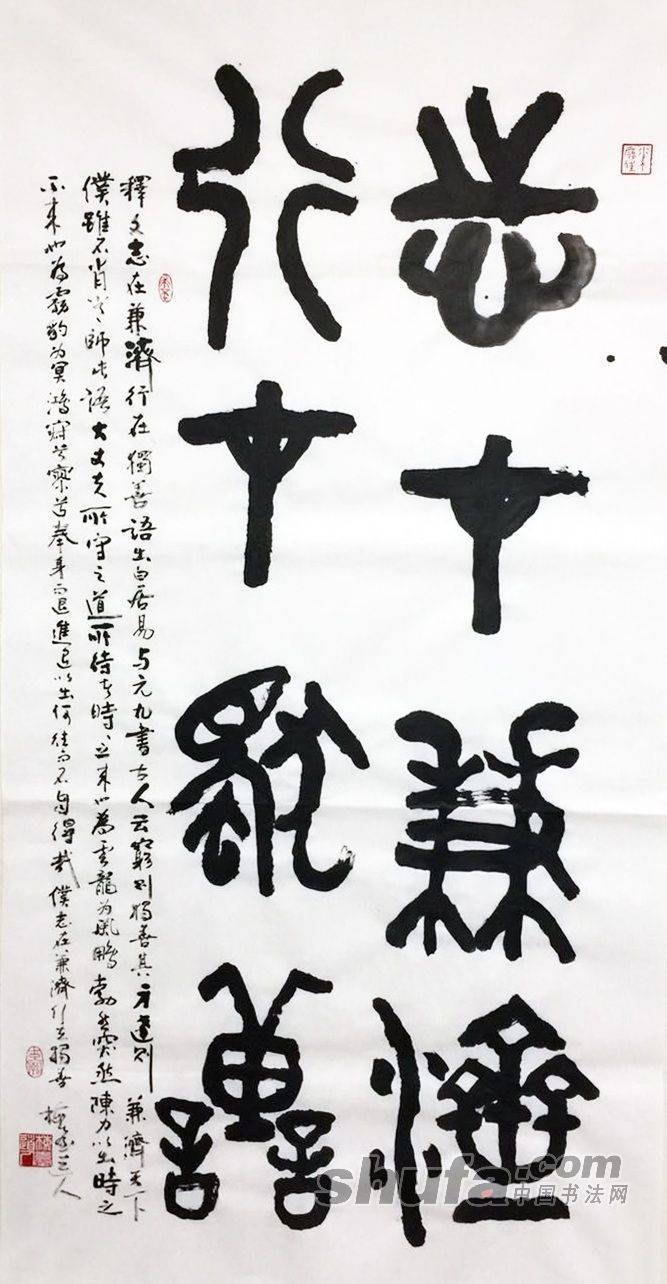 志在兼濟
行在獨善
釋文志在兼濟行在獨善語出白居易与元九書古人云窮則獨善其身達則兼濟天下
僕雖不肖常師此語大丈夫所守之道所待者時之來也為雲龍為風鵬勃然突然陳力以出時之
不來也為霧豹為冥鴻寂兮寥兮奉身而退進退以出何往而不自得哉僕志在兼濟行在獨善
道人
shufa.com
中国书法网